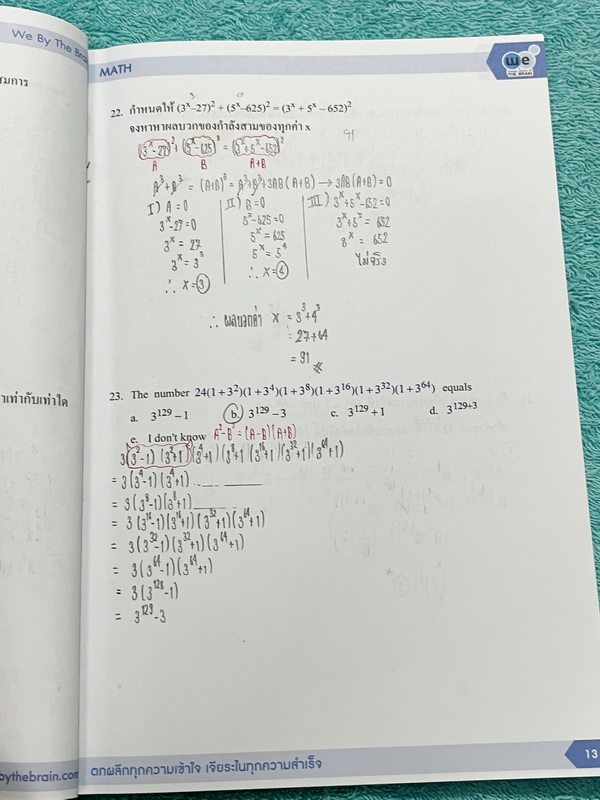 We By The Brain
MATH
we
THE BRAIN
22. กำหนดให้ (3ˣ–27)² + (5ˣ–625)² = (3ˣ + 5ˣ – 652)²
จงหาหาผลบวกของกำลังสามของทุกค่า x
91
(3ˣ-27)² + (5ˣ-625)³ = (3ˣ+5ˣ-652)²
A B A+B
A³+B³ = (A+B)³ = A³+B³+3AB(A+B) → 3AB(A+B)=0
I) A = 0
3ˣ-27=0
3ˣ = 27
3ˣ = 3³
∴ x = 3
II) B=0
5ˣ-625=0
5ˣ = 625
5ˣ = 5⁴
∴ x = 4
III) 3ˣ+5ˣ-652=0
3ˣ+5ˣ = 652
8ˣ = 652
ไม่จริง
∴ ผลบวกค่า x = 3³+4³
= 27+64
= 91
23. The number 24(1+3²)(1+3⁴)(1+3⁸)(1+3¹⁶)(1+3³²)(1+3⁶⁴) equals
a. 3¹²⁹ – 1 b. 3¹²⁹ – 3 c. 3¹²⁹ + 1 d. 3¹²⁹⁺³
e. I don't know A²-B² = (A-B)(A+B)
3(3²-1)(3²+1)(3⁴+1)(3⁸+1)(3¹⁶+1)(3³²+1)(3⁶⁴+1)
= 3(3⁴-1)(3⁴+1)
= 3(3⁸-1)(3⁸+1)
= 3(3¹⁶-1)(3¹⁶+1)(3³²+1)(3⁶⁴+1)
= 3(3³²-1)(3³²+1)(3⁶⁴+1)
= 3(3⁶⁴-1)(3⁶⁴+1)
= 3(3¹²⁸-1)
= 3¹²⁹-3
าเท่ากับเท่าใด
bythebrain.com
ตกผลึกทุกความเข้าใจ เจียระไนทุกความสำเร็จ
13